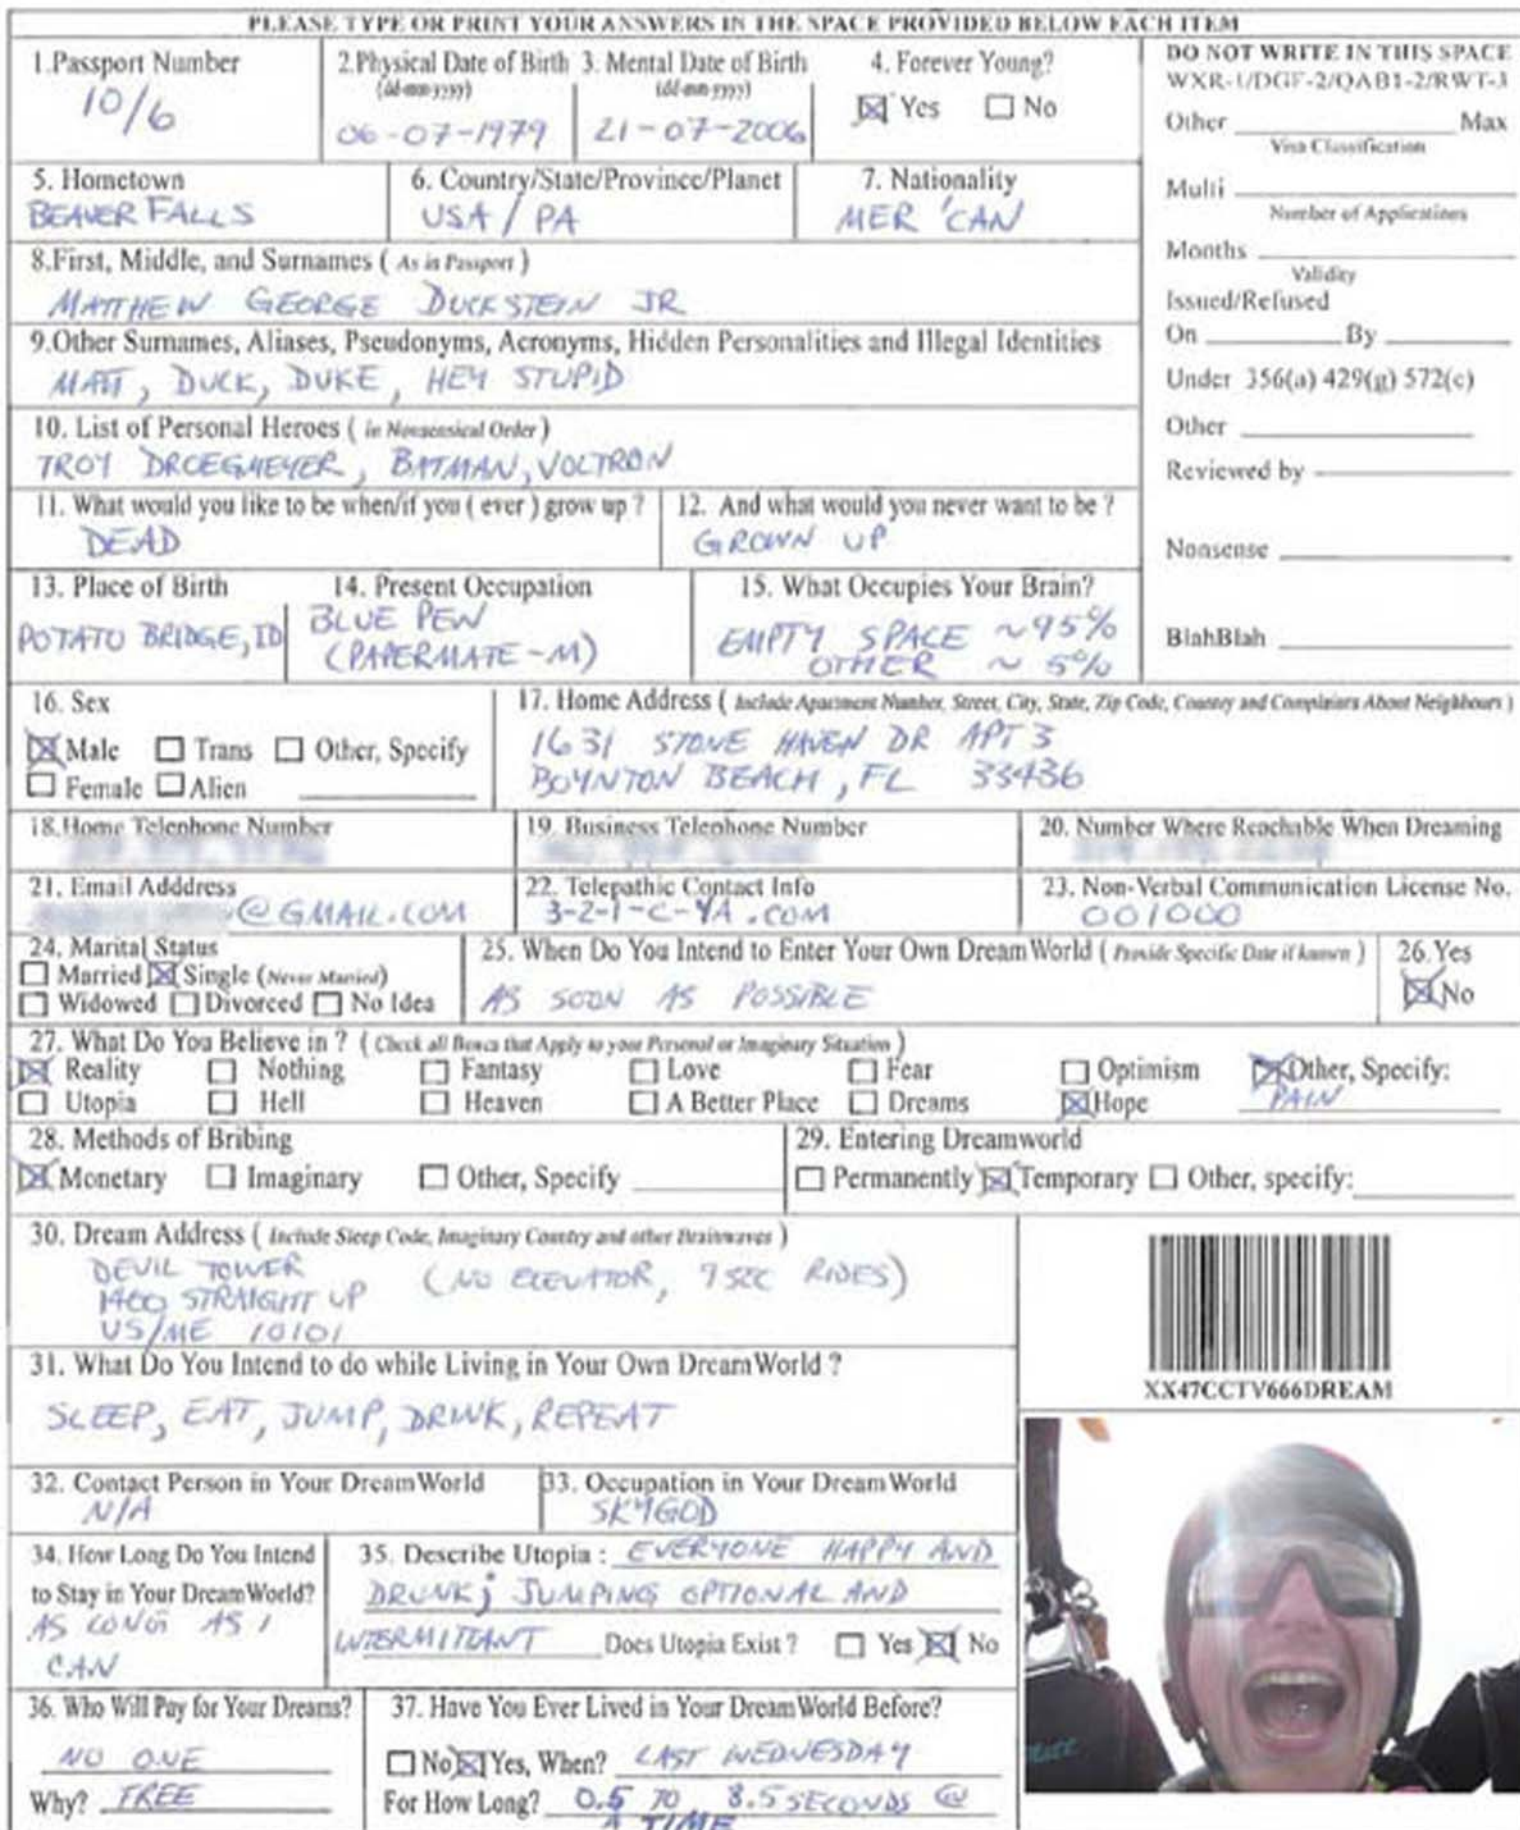 PLEASE TYPE OR PRINT YOUR ANSWERS IN THE SPACE PROVIDED BELOW EACH ITEM
1.Passport Number
10/6
2.Physical Date of Birth
(dd-mm-yyyy)
06-07-1979
3. Mental Date of Birth
(dd-mm-yyyy)
21-07-2006
4. Forever Young?
Yes No
DO NOT WRITE IN THIS SPACE
WXR-1/DGF-2/QAB1-2/RWT-3
Other Max
Visa Classification
Multi
Number of Applications
Months
Validity
Issued/Refused
On By
Under 356(a) 429(g) 572(c)
Other
Reviewed by
Nonsense
BlahBlah
5. Hometown
BEAVER FALLS
6. Country/State/Province/Planet
USA / PA
7. Nationality
MER 'CAN
8.First, Middle, and Surnames ( As in Passport )
MATTHEW GEORGE DUCKSTEIN JR
9.Other Surnames, Aliases, Pseudonyms, Acronyms, Hidden Personalities and Illegal Identities
MATT, DUCK, DUKE, HEY STUPID
10. List of Personal Heroes ( in Nonsensical Order )
TROY DROEGMEYER, BATMAN, VOLTRON
11. What would you like to be when/if you ( ever ) grow up ?
DEAD
12. And what would you never want to be ?
GROWN UP
13. Place of Birth
POTATO BRIDGE, ID
14. Present Occupation
BLUE PEN
(PAPERMATE-M)
15. What Occupies Your Brain?
EMPTY SPACE ~95%
OTHER ~ 5%
16. Sex
Male Trans Other, Specify
Female Alien
17. Home Address ( Include Apartment Number, Street, City, State, Zip Code, Country and Complaints About Neighbours )
1631 STONE HAVEN DR APT 3
BOYNTON BEACH, FL 33436
18.Home Telephone Number
19. Business Telephone Number
20. Number Where Reachable When Dreaming
21. Email Adddress
@GMAIL.COM
22. Telepathic Contact Info
3-2-1-C-YA.COM
23. Non-Verbal Communication License No.
001000
24. Marital Status
Married Single (Never Married)
Widowed Divorced No Idea
25. When Do You Intend to Enter Your Own DreamWorld ( Provide Specific Date if known )
AS SOON AS POSSIBLE
26.Yes
No
27. What Do You Believe in ? ( Check all Boxes that Apply to your Personal or Imaginary Situation )
Reality Nothing Fantasy Love Fear Optimism Other, Specify:
Utopia Hell Heaven A Better Place Dreams Hope PAIN
28. Methods of Bribing
Monetary Imaginary Other, Specify
29. Entering Dreamworld
Permanently Temporary Other, specify:
30. Dream Address ( Include Sleep Code, Imaginary Country and other Brainwaves )
DEVIL TOWER (NO ELEVATOR, 7 SEC RIDES)
1400 STRAIGHT UP
US/ME 10101
XX47CCTV666DREAM
31. What Do You Intend to do while Living in Your Own DreamWorld ?
SLEEP, EAT, JUMP, DRINK, REPEAT
32. Contact Person in Your DreamWorld
N/A
33. Occupation in Your DreamWorld
SKYGOD
34. How Long Do You Intend
to Stay in Your DreamWorld?
AS LONG AS I
CAN
35. Describe Utopia : EVERYONE HAPPY AND
DRUNK; JUMPING OPTIONAL AND
INTERMITTANT Does Utopia Exist ? Yes No
36. Who Will Pay for Your Dreams?
NO ONE
Why? FREE
37. Have You Ever Lived in Your DreamWorld Before?
No Yes, When? LAST WEDNESDAY
For How Long? 0.5 TO 8.5 SECONDS @
A TIME